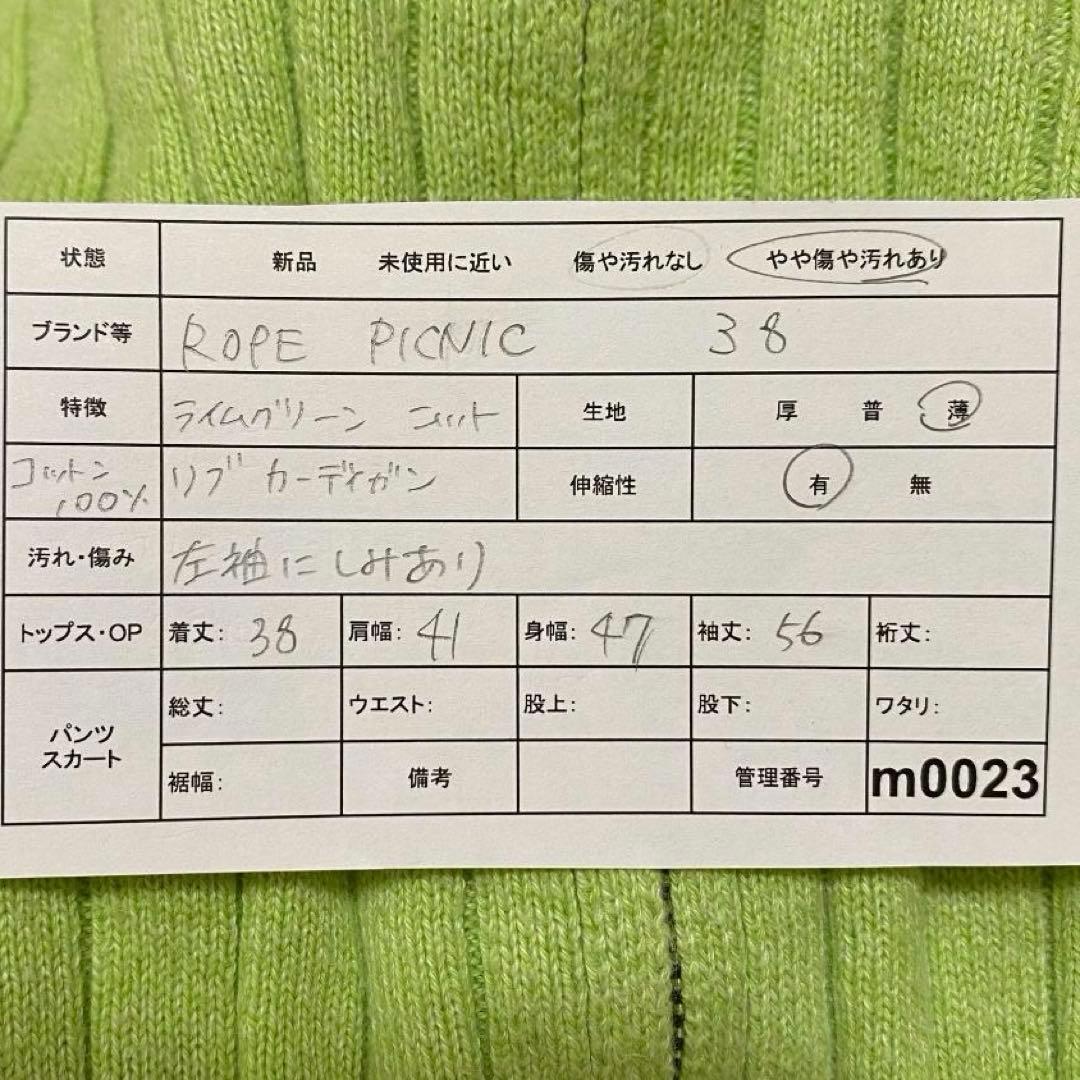 状態 新品 未使用に近い 傷や汚れなし やや傷や汚れあり
ブランド等 ROPE PICNIC 38
特徴 ライムグリーン ニット 生地 厚 普 薄
コットン 100% リブ カーディガン 伸縮性 有 無
汚れ・傷み 左袖にしみあり
トップス・OP 着丈: 38 肩幅: 41 身幅: 47 袖丈: 56 裄丈:
パンツ スカート 総丈: ウエスト: 股上: 股下: ワタリ:
裾幅: 備考 管理番号 m0023